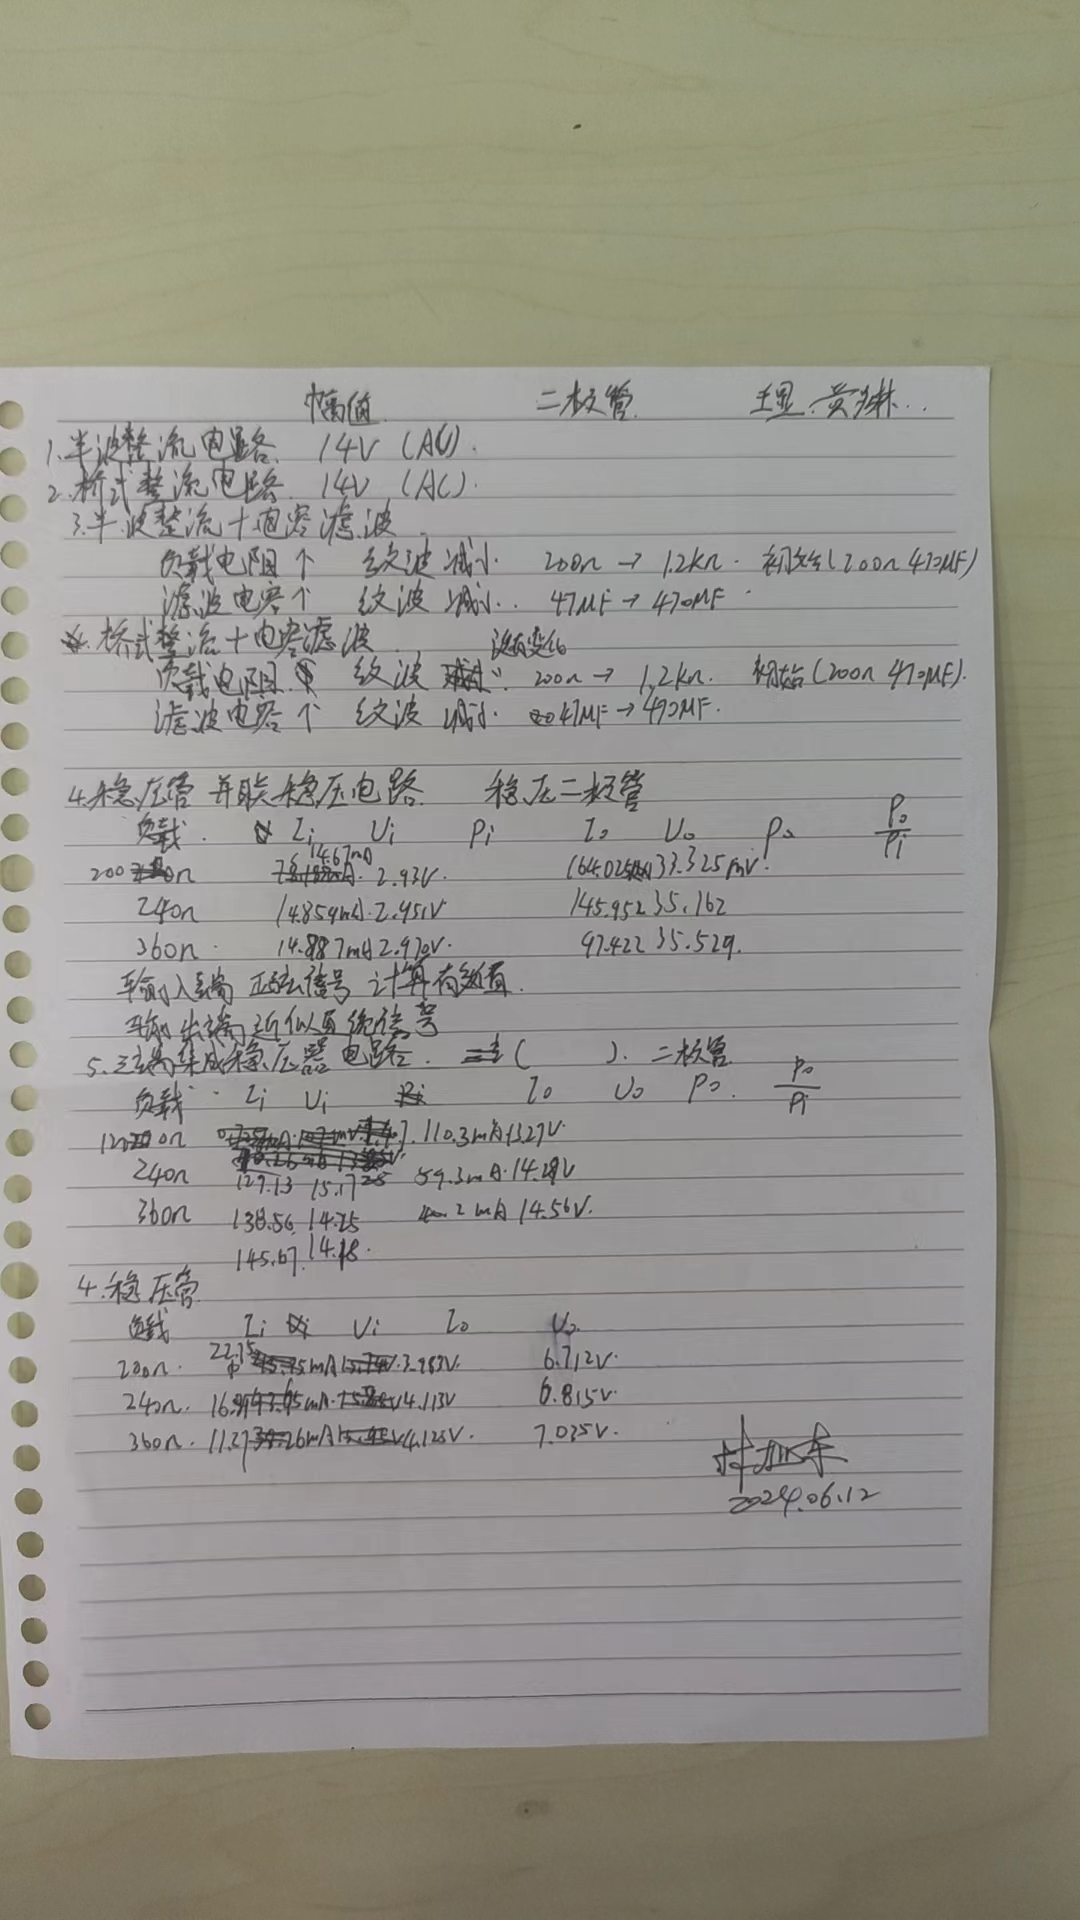 幅值 二极管
1.半波整流电路 14V (AC).
2.桥式整流电路 14V (AC).
3.半波整流+电容滤波.
负载电阻个 纹波减小. 200Ω → 1.2kΩ. 初始(200Ω 470μF)
滤波电容个 纹波减小. 47μF → 470μF
桥式整流+电容滤波.
没有变化
负载电阻 纹波 200Ω → 1.2kΩ. 初始(200Ω 470μF).
滤波电容个 纹波减小 47μF → 470μF.
4.稳压管并联稳压电路 稳压二极管
负载. Ii Ui Pi Io Uo Po Po/Pi
14.67mA
200Ω 2.93V. 164.025 33.325mV.
240Ω 14.859mA.2.951V 145.952 35.162
360Ω 14.887mA 2.970V. 97.422 35.529.
输入端 正弦信号 计算有效值.
输出端近似直流信号
5.三端集成稳压器电路. ( ). 二极管
负载 Ii Ui Io Uo Po. Po/Pi
120Ω 110.3mA 1327V.
240Ω 127.13 15.17 59.3mA.14.28V
360Ω 138.56 14.25 2mA 14.56V.
145.67 14.18.
4.稳压管
负载 Ii Ui Io Uo
200Ω. 22.75 3.983V. 6.712V.
240Ω. 4.113V 6.815V.
360Ω. 11.27 4.125V. 7.035V.
2024.06.12